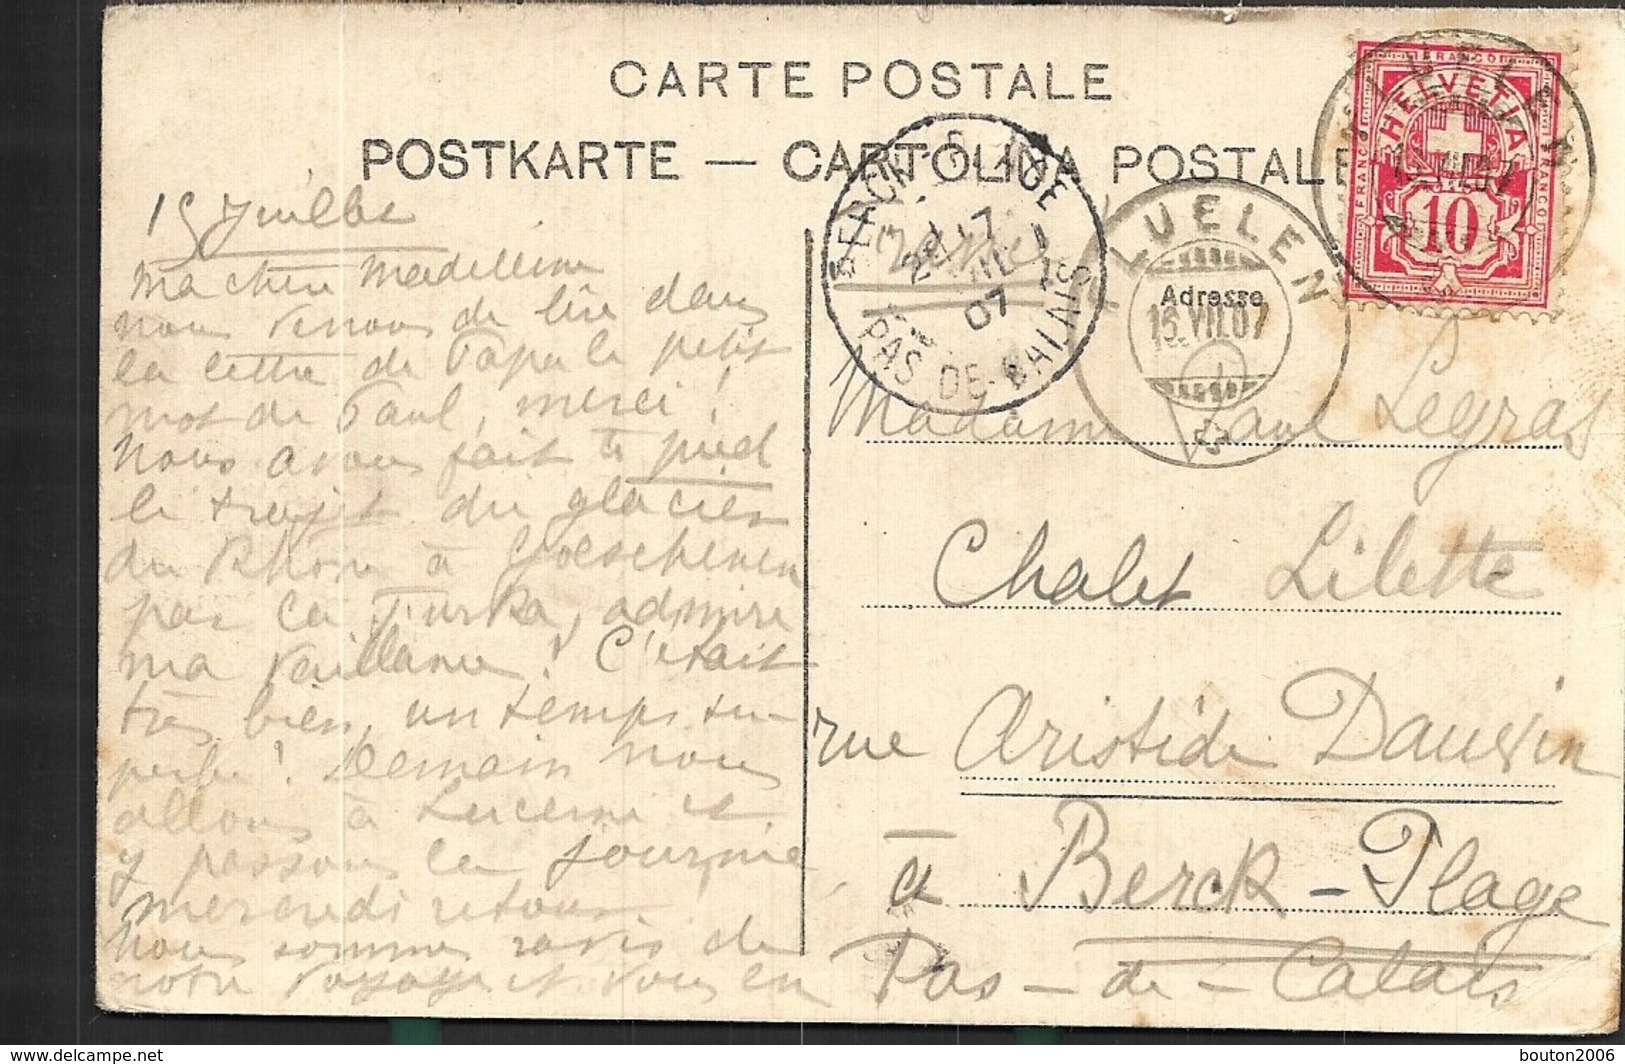 CARTE POSTALE
POSTKARTE — CARTOLINA POSTALE
FRANCO
HELVETIA
FRANCO
FRANCO
10
FLUELEN
16.VII.07
FLUELEN
Adresse
16.VII.07
BERCK-PLAGE
17
07
PAS-DE-CALAIS
15 Juillet
Ma chère Madeleine
nous venons de lire dans
la lettre de Papa le petit
mot de Paul, merci!
Nous avons fait à pied
le trajet du glacier
du Rhône à Goeschenen
par la Furka, admire
ma vaillance! C'était
très bien, un temps su-
perbe! Demain nous
allons à Lucerne et
y passons la journée
mercredi retour.
Nous sommes ravis de
notre voyage et vous en
Madame Paul Legras
Chalet Lilette
rue Aristide Dauvin
à Berck-Plage
Pas-de-Calais
https://www.delcampe.net
bouton2006